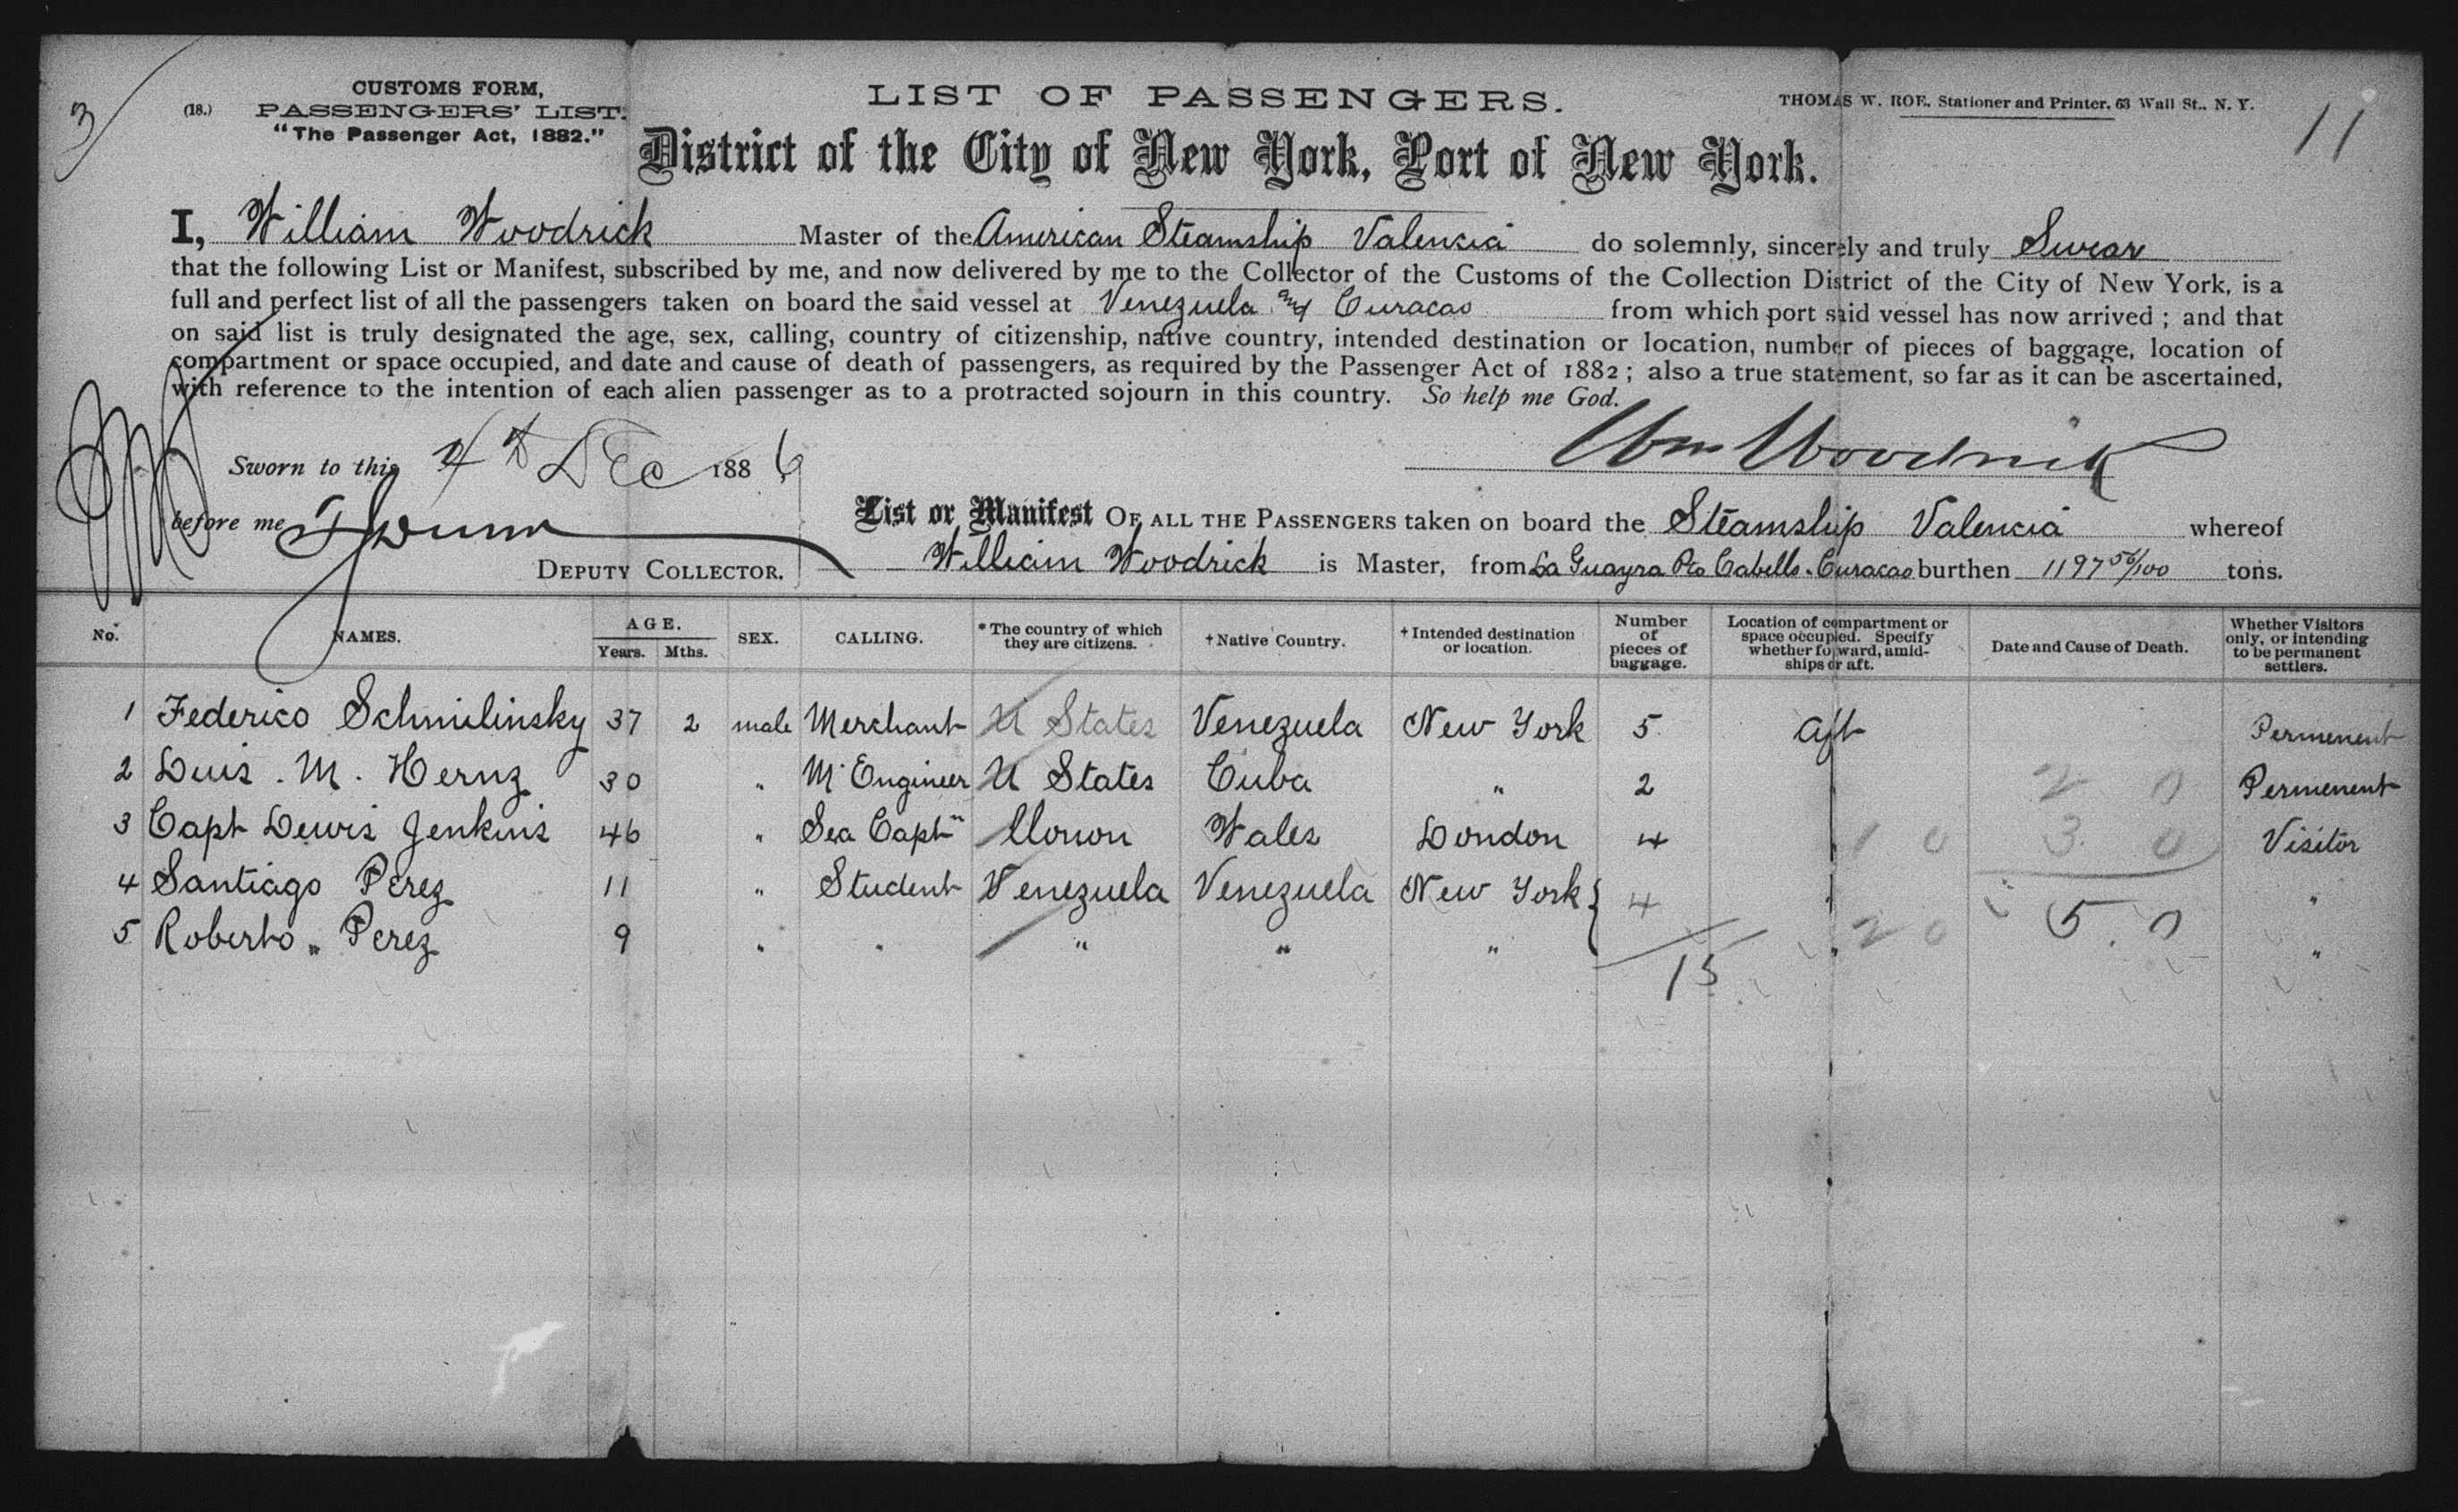 3
CUSTOMS FORM,
(18.) PASSENGERS' LIST.
"The Passenger Act, 1882."
LIST OF PASSENGERS.
THOMAS W. ROE, Stationer and Printer, 63 Wall St., N. Y.
11
District of the City of New York, Port of New York.
I, William Woodrick Master of the American Steamship Valencia do solemnly, sincerely and truly Swear
that the following List or Manifest, subscribed by me, and now delivered by me to the Collector of the Customs of the Collection District of the City of New York, is a
full and perfect list of all the passengers taken on board the said vessel at Venezuela and Curacao from which port said vessel has now arrived ; and that
on said list is truly designated the age, sex, calling, country of citizenship, native country, intended destination or location, number of pieces of baggage, location of
compartment or space occupied, and date and cause of death of passengers, as required by the Passenger Act of 1882 ; also a true statement, so far as it can be ascertained,
with reference to the intention of each alien passenger as to a protracted sojourn in this country. So help me God.
Sworn to this 4th Dec 1886
Wm Woodrick
before me
DEPUTY COLLECTOR.
List or Manifest OF ALL THE PASSENGERS taken on board the Steamship Valencia whereof
William Woodrick is Master, from La Guayra Pto Cabello. Curacao burthen 1197 56/100 tons.
No. NAMES. AGE. Years. Mths. SEX. CALLING. *The country of which they are citizens. †Native Country. †Intended destination or location. Number of pieces of baggage. Location of compartment or space occupied. Specify whether forward, amidships or aft. Date and Cause of Death. Whether Visitors only, or intending to be permanent settlers.
1 Federico Schmilinsky 37 2 male Merchant U States Venezuela New York 5 Aft Permenent
2 Luis . M . Hernz 30 " M. Engineer U States Cuba " 2 " 2 0 Permenent
3 Capt Lewis Jenkins 46 " Sea Captn Wales London 4 " 1 0 3 0 Visitor
4 Santiago Perez 11 " Student Venezuela Venezuela New York 4 " 5 0 "
5 Roberto " Perez 9 " " " " " " 2 0 "
15